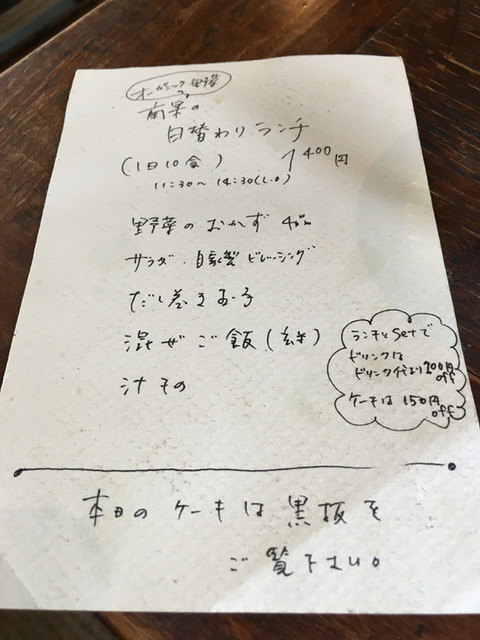 オーガニック野菜
南果の
日替わりランチ
(1日10食) 1400円
11:30〜14:30(L.O)
野菜のおかず 4品
サラダ.自家製ドレッシング
だし巻き玉子
混ぜご飯(玄米)
汁もの
ランチとSetで
ドリンクは
ドリンク代より200円
off
ケーキは150円
off
本日のケーキは黒板を
ご覧下さい。